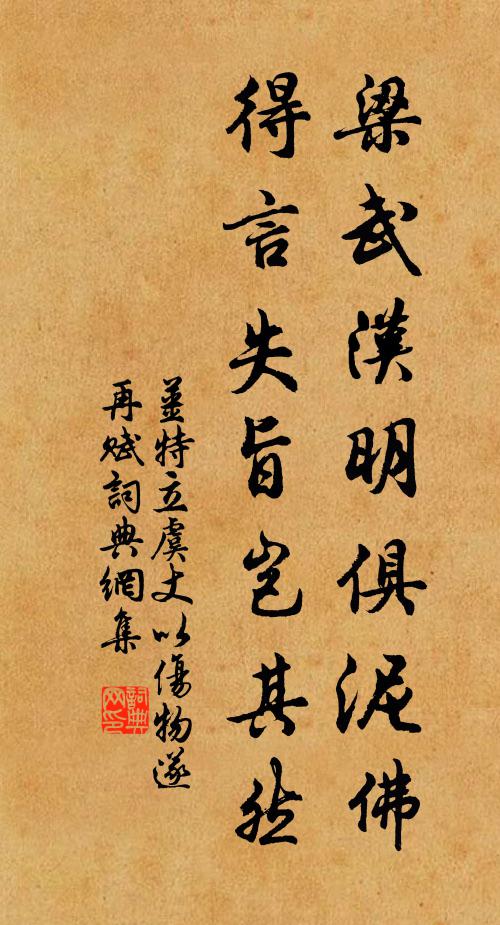 梁武漢明俱泥佛
得言失旨豈其然
姜特立虞丈以傷物遂
再赋詞典網集
詞典网印